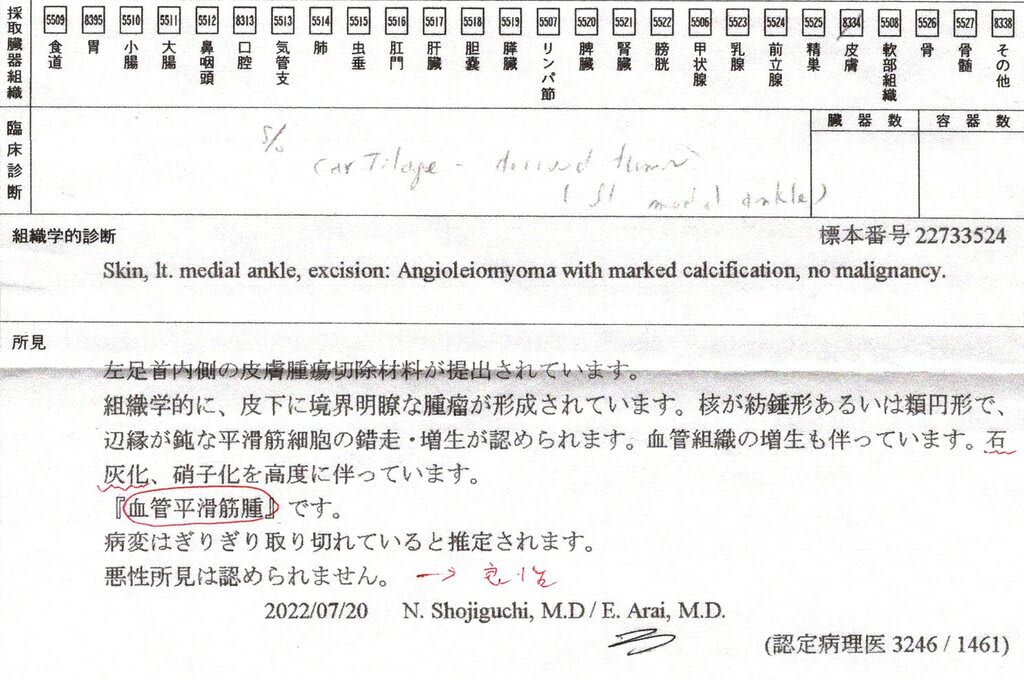 採取臓器組織
5509 8395 5510 5511 5512 8313 5513 5514 5515 5516 5517 5518 5519 5507 5520 5521 5522 5506 5523 5524 5525 8334 5508 5526 5527 8338
食道 胃 小腸 大腸 鼻咽頭 口腔 気管支 肺 虫垂 肛門 肝臓 胆嚢 膵臓 リンパ節 脾臓 腎臓 膀胱 甲状腺 乳腺 前立腺 精巣 皮膚 軟部組織 骨 骨髄 その他
臨床診断
臓器数 容器数
S/o
cartilage - derived tumor
medial ankle)
組織学的診断 標本番号 22733524
Skin, lt. medial ankle, excision: Angioleiomyoma with marked calcification, no malignancy.
所見
左足首内側の皮膚腫瘍切除材料が提出されています。
組織学的に、皮下に境界明瞭な腫瘤が形成されています。核が紡錘形あるいは類円形で、
辺縁が鈍な平滑筋細胞の錯走・増生が認められます。血管組織の増生も伴っています。石
灰化、硝子化を高度に伴っています。
『血管平滑筋腫』です。
病変はぎりぎり取り切れていると推定されます。
悪性所見は認められません。 → 良性
2022/07/20 N. Shojiguchi, M.D / E. Arai, M.D.
(認定病理医 3246 / 1461)